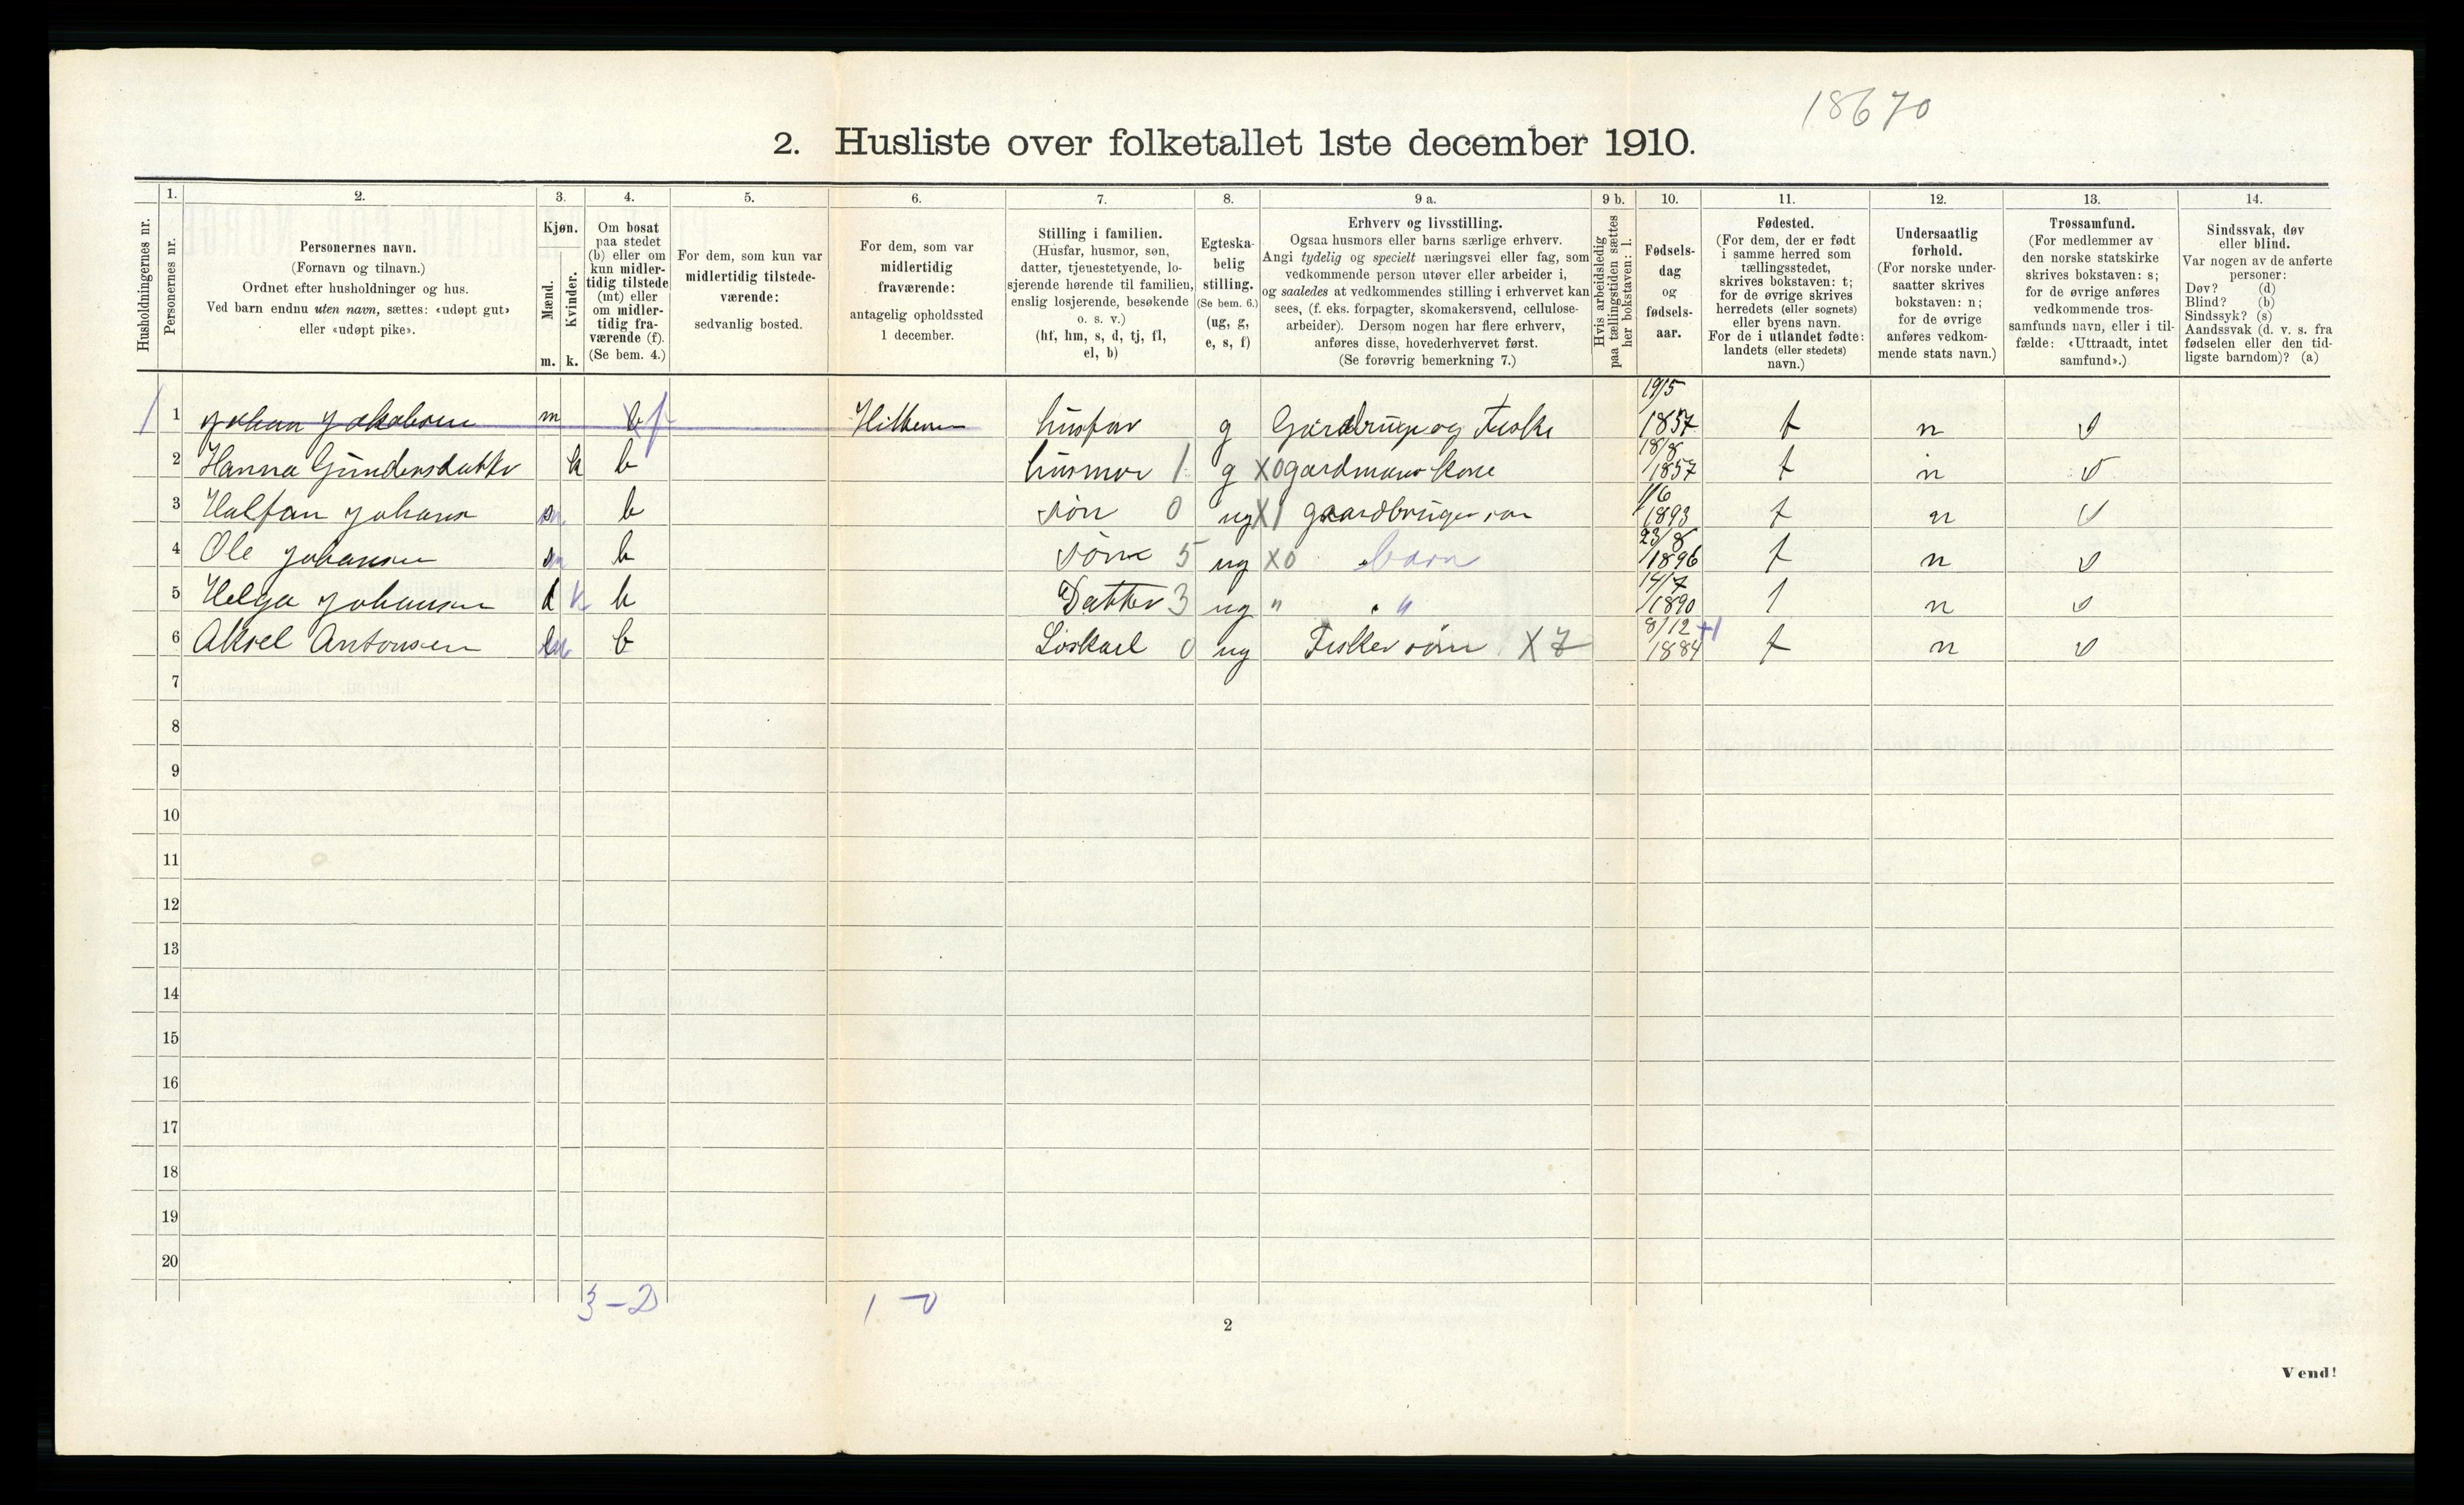 18670
2. Husliste over folketallet 1ste december 1910.
Husholdningernes nr.
1. Personernes nr.
2. Personernes navn.
(Fornavn og tilnavn.)
Ordnet efter husholdninger og hus.
Ved barn endnu uten navn, sættes: «udøpt gut»
eller «udøpt pike».
3. Kjøn.
Mænd. m.
Kvinder. k.
4. Om bosat
paa stedet
(b) eller om
kun midler-
tidig tilstede
(mt) eller
om midler-
tidig fra-
værende (f).
(Se bem. 4.)
5. For dem, som kun var
midlertidig tilstede-
værende:
sedvanlig bosted.
6. For dem, som var
midlertidig
fraværende:
antagelig opholdssted
1 december.
7. Stilling i familien.
(Husfar, husmor, søn,
datter, tjenestetyende, lo-
sjerende hørende til familien,
enslig losjerende, besøkende
o. s. v.)
(hf, hm, s, d, tj, fl,
el, b)
8. Egteska-
belig
stilling.
(Se bem. 6.)
(ug, g,
e, s, f)
9 a. Erhverv og livsstilling.
Ogsaa husmors eller barns særlige erhverv.
Angi tydelig og specielt næringsvei eller fag, som
vedkommende person utøver eller arbeider i,
og saaledes at vedkommendes stilling i erhvervet kan
sees, (f. eks. forpagter, skomakersvend, cellulose-
arbeider). Dersom nogen har flere erhverv,
anføres disse, hovederhvervet først.
(Se forøvrig bemerkning 7.)
9 b. Hvis arbeidsledig
paa tællingstiden sættes
her bokstaven: l.
10. Fødsels-
dag
og
fødsels-
aar.
11. Fødested.
(For dem, der er født
i samme herred som
tællingsstedet,
skrives bokstaven: t;
for de øvrige skrives
herredets (eller sognets)
eller byens navn.
For de i utlandet fødte:
landets (eller stedets)
navn.)
12. Undersaatlig
forhold.
(For norske under-
saatter skrives
bokstaven: n;
for de øvrige
anføres vedkom-
mende stats navn.)
13. Trossamfund.
(For medlemmer av
den norske statskirke
skrives bokstaven: s;
for de øvrige anføres
vedkommende tros-
samfunds navn, eller i til-
fælde: «Uttraadt, intet
samfund».)
14. Sindssvak, døv
eller blind.
Var nogen av de anførte
personer:
Døv? (d)
Blind? (b)
Sindssyk? (s)
Aandssvak (d. v. s. fra
fødselen eller den tid-
ligste barndom)? (a)
1 1 Johan Jakobsen m b f Hitteren husfar g Gardbruge og Fiske 19/5 1857 t n s
2 Hanna Gundersdatter k b husmor 1 g X0 gardmans kone 18/8 1857 t n s
3 Halfan Johans m b søn 0 ug X1 gaardbruger søn 1/6 1893 t n s
4 Ole Johansen m b sønn 5 ug X0 barn 23/8 1896 t n s
5 Helga Johansen d k b Datter 3 ug " " 14/7 1890 t n s
6 Aksel Antonsen m b Løskarl 0 ug Fisker sønn X 7 8/12 1884 +1 t n s
7
8
9
10
11
12
13
14
15
16
17
18
19
20
3-2 1-0
2
Vend!